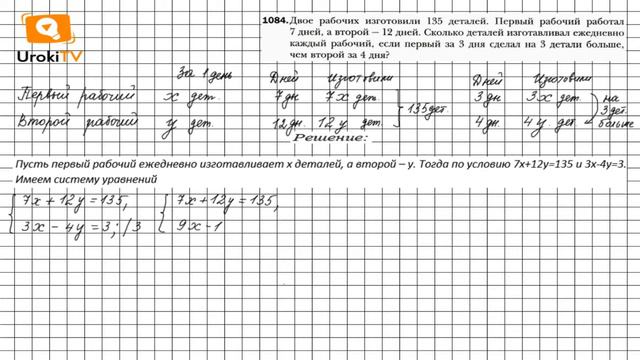 UrokiTV
1084. Двое рабочих изготовили 135 деталей. Первый рабочий работал
7 дней, а второй — 12 дней. Сколько деталей изготавливал ежедневно
каждый рабочий, если первый за 3 дня сделал на 3 детали больше,
чем второй за 4 дня?
За 1 день Дней Изготовили Дней Изготовили
Первый рабочий x дет. 7 дн 7x дет 135 дет 3 дн 3x дет. на 3 дет. больше
Второй рабочий y дет. 12 дн. 12 y дет. 4 дн. 4 y дет
Решение:
Пусть первый рабочий ежедневно изготавливает x деталей, а второй – y. Тогда по условию 7x+12y=135 и 3x-4y=3.
Имеем систему уравнений
7x + 12y = 135, 7x + 12y = 135,
3x - 4y = 3; /3 9x - 1